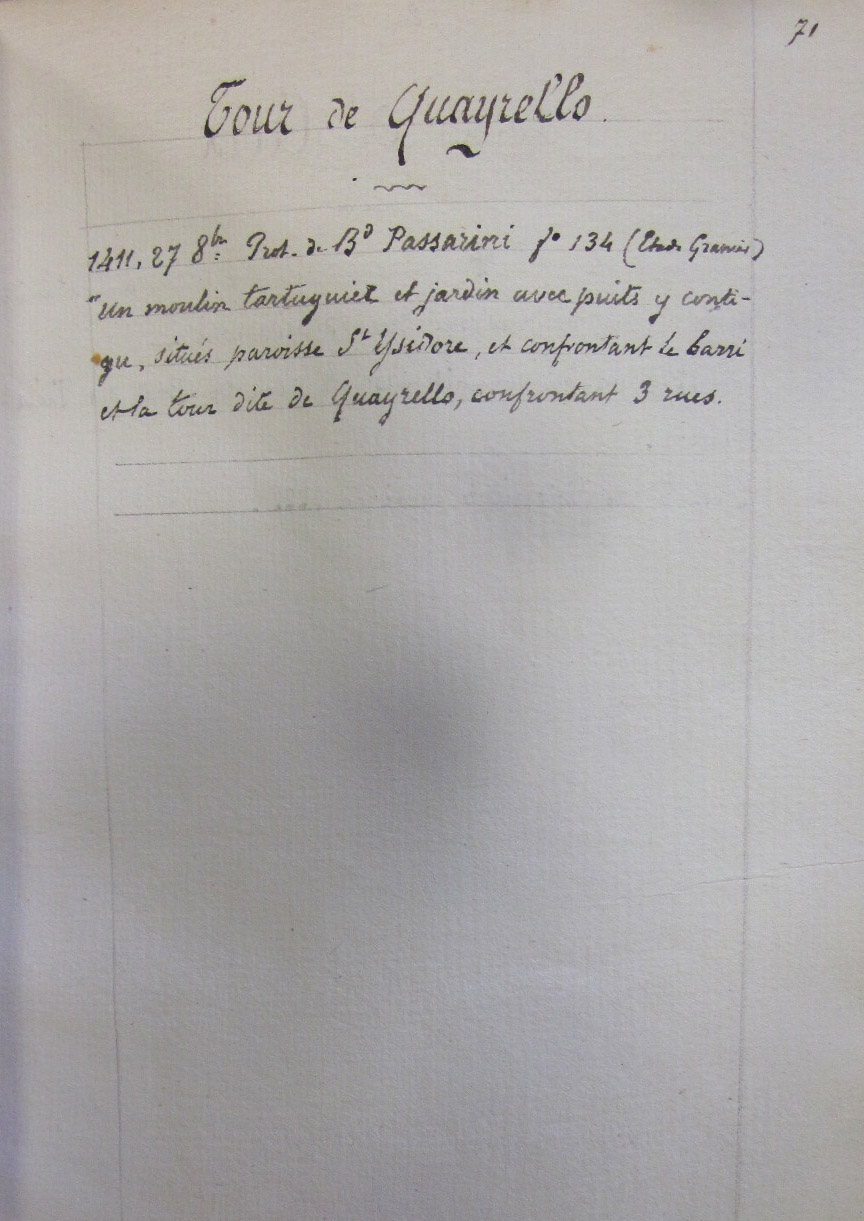 71
Tour de Quayrello.
1411, 27 8bre Prot. de Bd Passarini fo 134 (Etude
"Un moulin tartuguier et jardin avec puits y conti-
gu, situés paroisse St Ysidore, et confrontant le barri
et la tour dite de Quayrello, confrontant 3 rues.